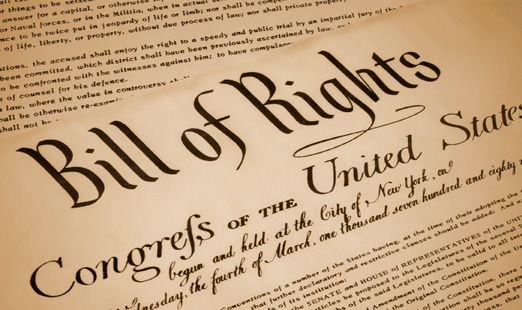 things to be seized.
answer for a capital, or otherwise
or Naval forces, or in the Militia, when in actual
to be twice put in jeopardy of life or limb; nor shall be
of life, liberty, or property, without due process of law; nor shall private property
the accused shall enjoy the right to a speedy and public trial by an impartial jury of the
been committed, which district shall have been previously ascertained by law,
to be confronted with the witnesses against him; to have
of counsel for his defence.
law, where the value in controversy
shall be otherwise re-exam
shall not be
Bill of Rights
Congreſs OF THE United States
begun and held at the City of New York, on
the fourth of March, one thousand seven hundred and eighty
Conventions of a number of the States having, at the time of their adopting the
that further declaratory and restrictive clauses should be added: And
of its institution:
the SENATE and HOUSE of REPRESENTATIVES of the
be proposed to the Legislatures of the several
of the said Legislatures, to be valid to all
Amendment of the Constitution of the
of the Original Constitution.